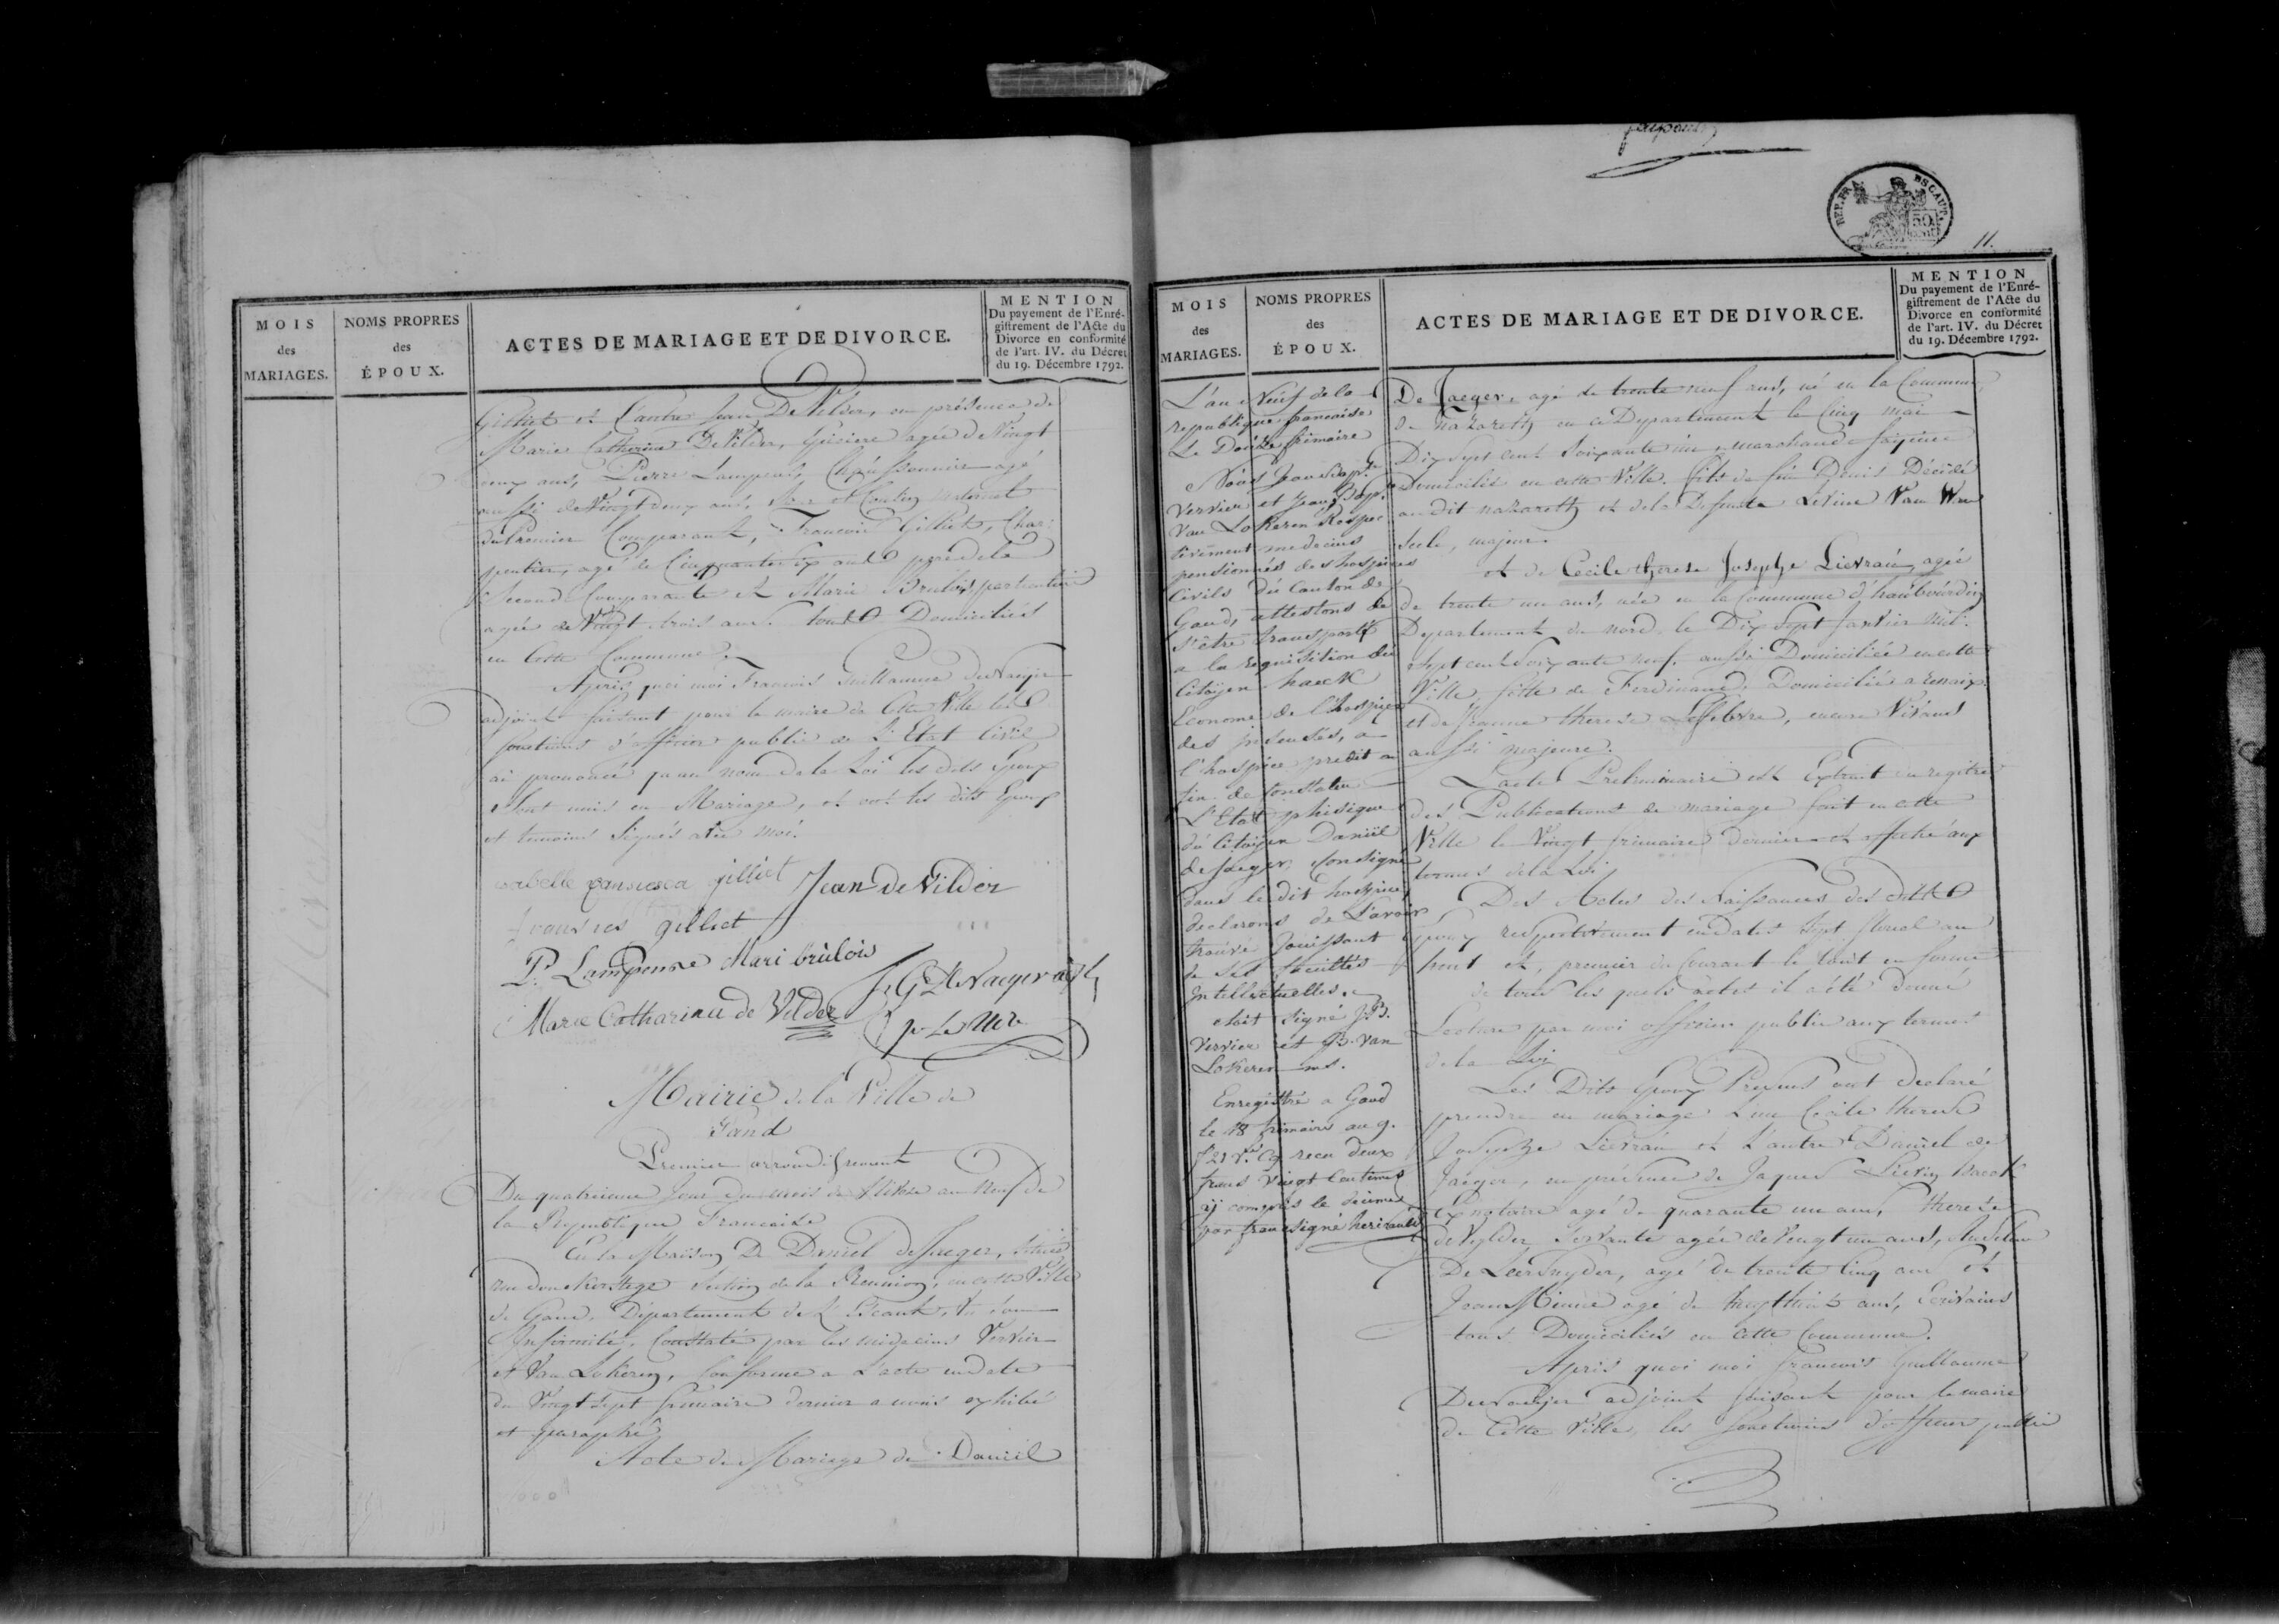 MOIS
des
MARIAGES.
NOMS PROPRES
des
ÉPOUX.
ACTES DE MARIAGE ET DE DIVORCE.
MENTION
Du payement de l'Enré-
gistrement de l'Acte du
Divorce en conformité
de l'art. IV. du Décret
du 19. Décembre 1792.
Gilliet et l'autre Jean De Vilder, en présence de
Marie Catherine De Vilder, agée de Vingt
ans, Pierre Lampens, agé
aussi de Vingt deux ans, et Cousin maternel
du Premier Comparant, François Gilliet, Char-
pentier, agé de Cinquante six ans père de la
Seconde Comparante et Marie Brulois particuliere
agée de Vingt trois ans. tous Domiciliés
en Cette Commune.
Après quoi moi François Guillaume DeNaeijer
adjoint faisant pour le maire de Cette Ville les
fonctions d'officier public de l'Etat Civil
ai prononcé qu'au nom de la Loi les dits Epoux
sont unis en Mariage, et ont les dits Epoux
et temoins signés avec moi.
isabelle fransiesca gilliet Jean de Vilder
fransies gilliet
P. Lampense Mari brulois
F. G. DeNaeyer adjt
Marie Catharina de Vilder pr Le Mre
Mairie de la Ville de
Gand
Premier arrondissement
Du quatrieme Jour du mois de Nivose an Neuf de
la Republique Francaise
En la Maison De Daniel deJaeger, située
rue section de la Reunion, en cette Ville
de Gand, Département de L'Escaut, vu son
Infirmité, Constatée par les médecins Vervier
et Van Lokeren, Conforme a L'acte endate
du Vingt sept frimaire dernier a nous exhibé
et paraphé
Acte de Mariage de Daniel
REP. FRA. ESCAUT.
50 cent
11.
MOIS
des
MARIAGES.
NOMS PROPRES
des
ÉPOUX.
ACTES DE MARIAGE ET DE DIVORCE.
MENTION
Du payement de l'Enré-
gistrement de l'Acte du
Divorce en conformité
de l'art. IV. du Décret
du 19. Décembre 1792.
L'an Neuf de la
republique francaise
Le Douze frimaire
Nous Jean Bapte
Vervier et Jean Bapte
Van Lokeren Respec
tivement medecins
pensionnés des hospices
Civils du Canton de
Gand, attestons de
s'être transporté
a la requisition du
Citoijen haeck
Econome de l'hospice
des insensés, a
l'hospice predit au
fin de Constater
L'Etat phisique
du Citoijen Daniël
deJaeger, Consigné
dans le dit hospice
declarons de L'avoir
trouvé Jouissant
de ses facultés
Intellectuelles.
etoit signé J.B.
Vervier et J.B. Van
Lokeren ms.
Enregistré a Gand
le 18 frimaire an 9.
fo 21 vo reçu deux
francs vingt Centimes
ij compris le décime
par franc signé
De Jaeger, agé de trente neuf ans, né en la Commune
de Nazareth en ce Departement le Cinq mai
Dix sept cent soixante un, marchand
Domicilié en cette Ville. fils de feu Denis Décédé
au dit nazareth et de la Defunte Livine Van
majeur.
et de Cecile therese Josephe Lievrain, agée
de trente un ans, née en la Commune d'haubourdin
Departement du nord le Dix sept Janvier Mil
sept cent soixante neuf. aussi Domiciliée en cette
Ville, fille de Ferdinand, Domicilié a renaix
et de Jeanne therese Lefebvre, encore Vivans
aussi majeure.
L'acte Preliminaire est Extrait du registre
des Publications de mariage fait en cette
Ville le Vingt frimaire dernier et affiché aux
termes de la Loi
Des Actes des Naissances des dits
Epoux respectivement endates sept floreal an
huit et, premier du Courant le tout en forme
de tous les quels actes il a été donné
Lecture par moi officier public aux termes
de la Loi
Les Dits Epoux Presens ont declaré
prendre en mariage L'une Cecile therese
Josephe Lievrain et L'autre Daniel de
Jaeger, en présence de Jaques Lievin
Ex notaire agé de quarante un ans, therese
deVylder servante agée de Vingt un ans, Anselme
De Leersnyder, agé de trente Cinq ans et
Jean Minne agé de ans, Ecrivains
tous Domiciliés en Cette Commune.
Après quoi moi Francois Guillaume
Denaeijer adjoint faisant pour le maire
de Cette Ville, les fonctions d'officier public